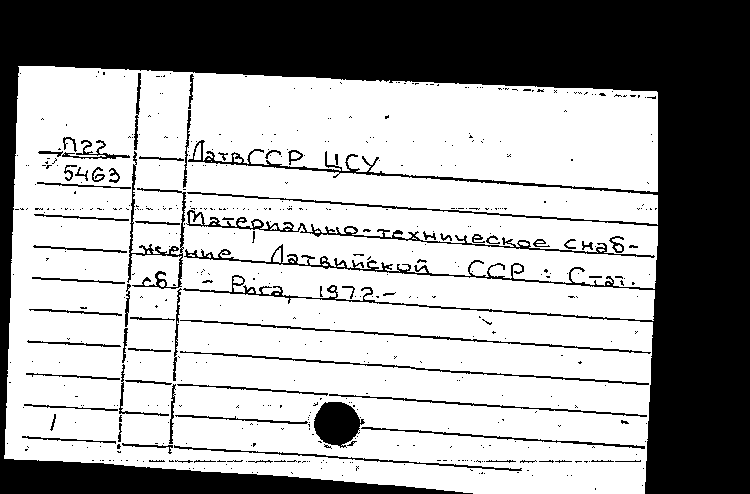 П22
5463
ЛатвССР ЦСУ.
Материально-техническое снаб-
жение Латвийской ССР : Стат.
сб. - Рига, 1972.-
1